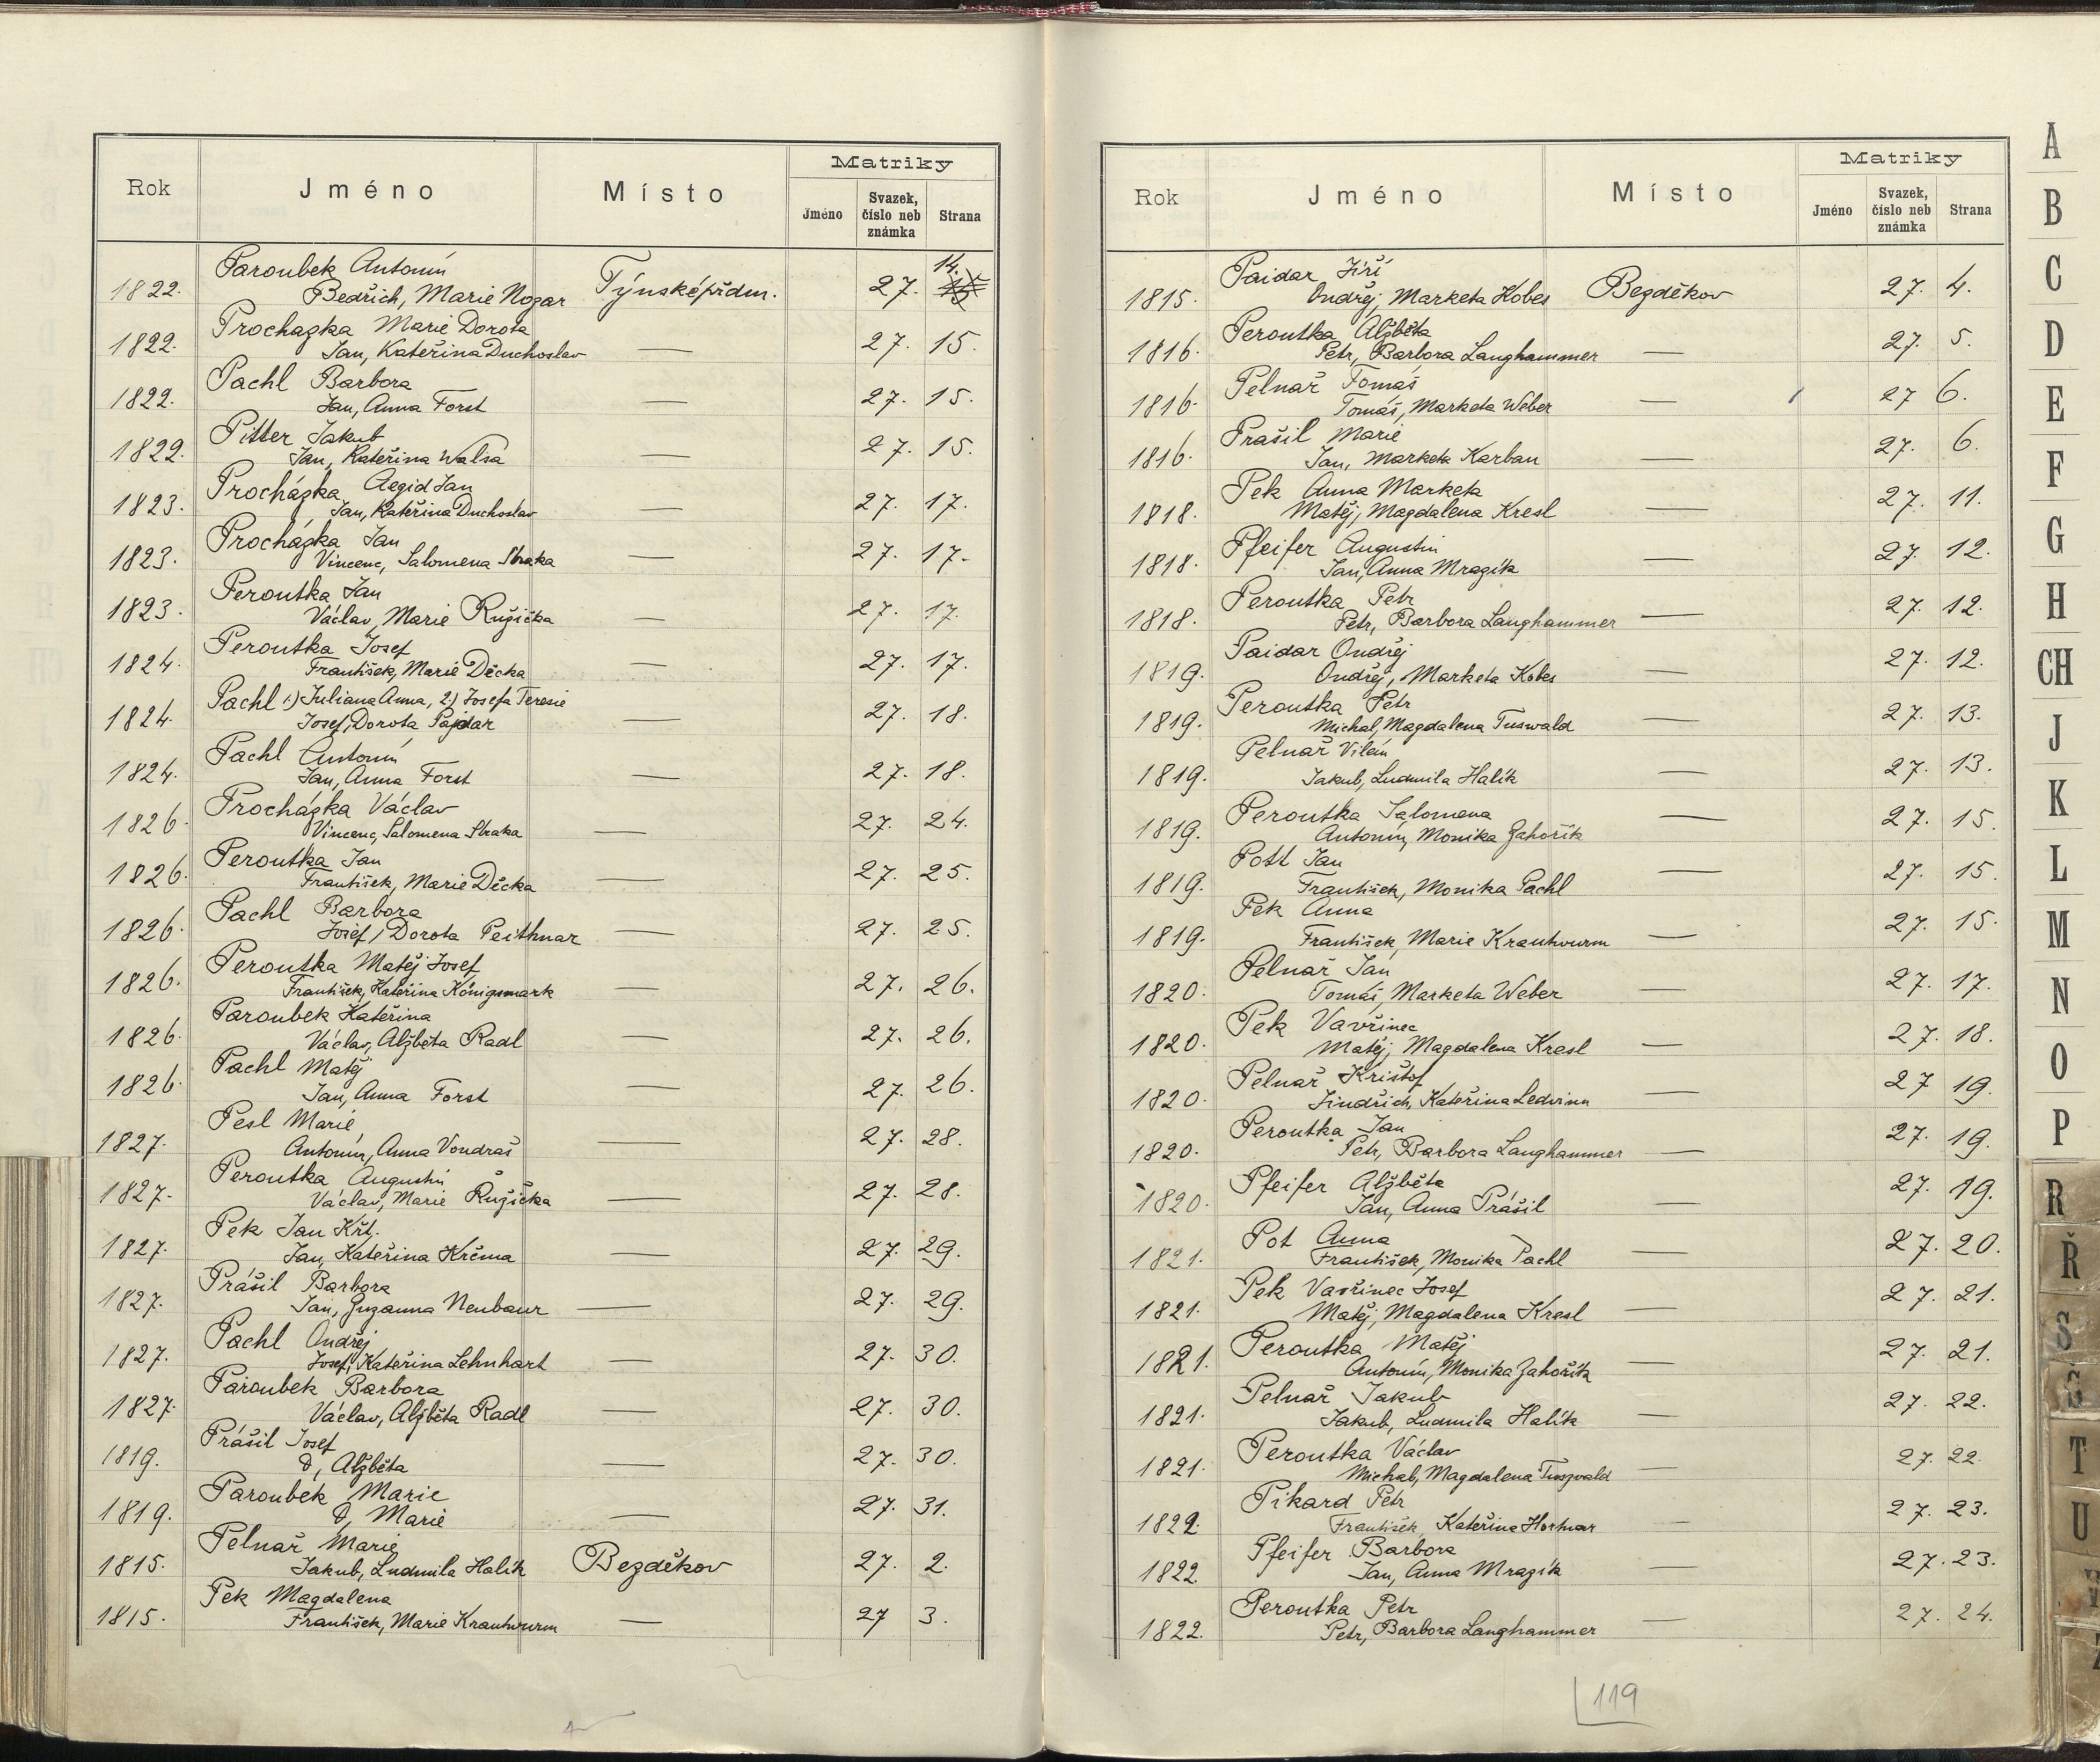 Rok Jméno Místo Matriky
Jméno Svazek, číslo neb známka Strana
Paroubek Antonín
1822. Bedřich, Marie Nozar Týnsképřdm. 27. 14.
Prochazka Marie Dorota
1822. Jan, Kateřina Duchoslav — 27. 15.
Pachl Barbora
1822. Jan, Anna Forst — 27. 15.
Pitter Jakub
1822. Jan, Kateřina Walsa — 27. 15.
Procházka Aegid Jan
1823. Jan, Kateřina Duchoslav — 27. 17.
Procházka Jan
1823. Vincenc, Salomena Straka — 27. 17.
Peroutka Jan
1823. Václav, Marie Ružička — 27. 17.
Peroutka Josef
1824. František, Marie Děcka — 27. 17.
Pachl 1) Juliana Anna, 2) Josefa Teresie
1824. Josef, Dorota Pajdar — 27. 18.
Pachl Antonín
1824. Jan, Anna Forst — 27. 18.
Procházka Václav
1826. Vincenc, Salomena Straka — 27. 24.
Peroutka Jan
1826. František, Marie Děcka — 27. 25.
Pachl Barbora
1826. Josef, Dorota Peithnar — 27. 25.
Peroutka Matěj Josef
1826. František, Kateřina Königsmark — 27. 26.
Paroubek Kateřina
1826. Václav, Alžběta Radl — 27. 26.
Pachl Matěj
1826. Jan, Anna Forst — 27. 26.
Pesl Marie
1827. Antonín, Anna Vondraš — 27. 28.
Peroutka Augustin
1827. Václav, Marie Ružička — 27. 28.
Pek Jan Křt.
1827. Jan, Kateřina Krčma — 27. 29.
Prášil Barbora
1827. Jan, Zuzanna Neubaur — 27. 29.
Pachl Ondřej
1827. Josef, Kateřina Lehnhart — 27. 30.
Paroubek Barbora
1827. Václav, Alžběta Radl — 27. 30.
Prášil Josef
1819. Alžběta — 27. 30.
Paroubek Marie
1819. Marie — 27. 31.
Pelnař Marie
1815. Jakub, Ludmila Halík Bezděkov 27. 2.
Pek Magdalena
1815. František, Marie Krautwurm — 27 3.
Rok Jméno Místo Matriky
Jméno Svazek, číslo neb známka Strana
Paidar Jiří
1815. Ondřej, Marketa Kobes Bezděkov 27. 4.
Peroutka Alžběta
1816. Petr, Barbora Langhammer — 27. 5.
Pelnař Tomáš
1816. Tomáš, Marketa Weber — 27 6.
Prašil Marie
1816. Jan, Marketa Karban — 27. 6.
Pek Anna Marketa
1818. Matěj, Magdalena Kresl — 27. 11.
Pfeifer Augustin
1818. Jan, Anna Mrazík — 27. 12.
Peroutka Petr
1818. Petr, Barbora Langhammer — 27. 12.
Paidar Ondřej
1819. Ondřej, Marketa Kobes — 27. 12.
Peroutka Petr
1819. Michal, Magdalena Tuswald — 27. 13.
Pelnař Vilém
1819. Jakub, Ludmila Halík — 27. 13.
Peroutka Salomena
1819. Antonín, Monika Zahořík — 27. 15.
Pott Jan
1819. František, Monika Pachl — 27. 15.
Pek Anna
1819. František, Marie Krautwurm — 27. 15.
Pelnař Jan
1820. Tomáš, Marketa Weber — 27. 17.
Pek Vavřinec
1820. Matěj, Magdalena Kresl — 27. 18.
Pelnař Krištof
1820. Jindřich, Kateřina Ledvina — 27 19.
Peroutka Jan
1820. Petr, Barbora Langhammer — 27. 19.
Pfeifer Alžběta
1820. Jan, Anna Prášil — 27. 19.
Pot Anna
1821. František, Monika Pachl — 27. 20.
Pek Vavřinec Josef
1821. Matěj, Magdalena Kresl — 27. 21.
Peroutka Matěj
1821. Antonín, Monika Zahořík — 27. 21.
Pelnař Jakub
1821. Jakub, Ludmila Halík — 27. 22.
Peroutka Václav
1821. Michal, Magdalena Tuszvald — 27. 22.
Pikard Petr
1822. František, Kateřina Hortnar — 27. 23.
Pfeifer Barbora
1822. Jan, Anna Mrazík — 27. 23.
Peroutka Petr
1822. Petr, Barbora Langhammer — 27. 24.
119
A
B
C
D
E
F
G
H
CH
J
K
L
M
N
O
P
R
Ř
S
Š
T
U